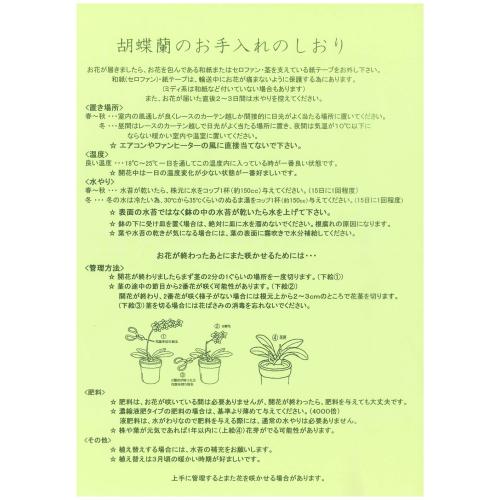 胡蝶蘭のお手入れのしおり
お花が届きましたら、お花を包んである和紙またはセロファン・茎を支えている紙テープをお外し下さい。
和紙(セロファン)・紙テープは、輸送中にお花が痛まないように保護する為にあります。
(ミディ系は和紙など付いていない場合もあります)
また、お花が届いた直後2～3日間は水やりを控えてください。
<置き場所>
春～秋 ・・・室内の風通しが良くレースのカーテン越しか間接的に日光がよく当たる場所に置いてください。
冬 ・・・昼間はレースのカーテン越しで日光がよく当たる場所に置き、夜間は気温が10℃以下に
ならない暖かい室内や温室に置いてください。
☆ エアコンやファンヒーターの風に直接当てないで下さい。
<温度>
良い温度 ・・・18℃～25℃一日を通してこの温度内に入っている時が一番良い状態です。
☆ 開花中は一日の温度変化が少ない状態が一番好ましいです。
<水やり>
春～秋 ・・・水苔が乾いたら、株元に水をコップ1杯(約150cc)与えてください。(15日に1回程度)
冬 ・・・冬の水は冷たい為、30℃から35℃くらいのぬるま湯をコップ1杯(約150cc)与えてください。(15日に1回程度)
☆ 表面の水苔ではなく鉢の中の水苔が乾いたら水を上げて下さい。
☆ 鉢の下に受け皿を置く場合は、絶対に皿に水を溜めないでください。根腐れの原因になります。
☆ 葉や水苔の乾きが気になる場合には、葉の表面に霧吹きで水分補給してください。
お花が終わったあとにまた咲かせるためには・・・
<管理方法>
☆ 開花が終わりましたらまず茎の2分の1ぐらいの場所を一度切ります。(下絵①)
☆ 茎の途中の節目から2番花が咲く可能性があります。(下絵②)
開花が終わり、2番花が咲く様子がない場合には根元上から2～3cmのところで花茎を切ります。
(下絵③)茎を切る場合には花ばさみの消毒を忘れないでください。
①
②
③
④
<肥料>
☆ 肥料は、お花が咲いている間は必要ありませんが、開花が終わったら、肥料を与えても大丈夫です。
☆ 濃縮液肥タイプの肥料の場合は、基準より薄めて与えてください。(4000倍)
液肥料は、水がわりなので肥料を与える際には、通常の水やりは必要ありません。
☆ 株や葉が元気であれば1年以内に(上絵④)花芽がでる可能性があります。
<その他>
☆ 植え替えする場合には、水苔の補充をお願いします。
☆ 植え替えは3月頃の暖かい時期が好ましいです。
上手に管理するとまた花を咲かせる場合があります。